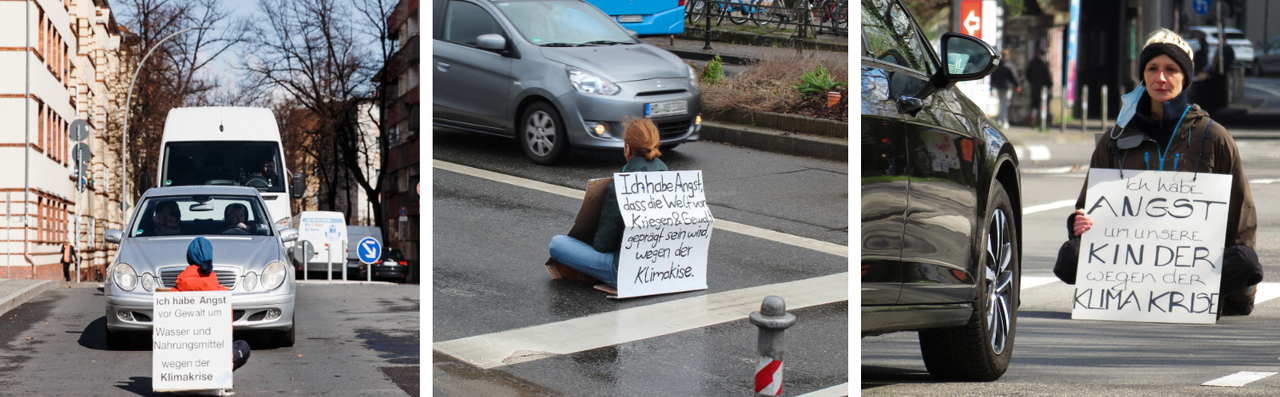 Ich habe Angst
vor Gewalt um
Wasser und
Nahrungsmittel
wegen der
Klimakrise
Ich habe Angst,
dass die Welt von
Kriegen & Gewalt
geprägt sein wird,
wegen der
Klimakrise.
Ich habe
ANGST
um unsere
KINDER
wegen der
KLIMAKRISE